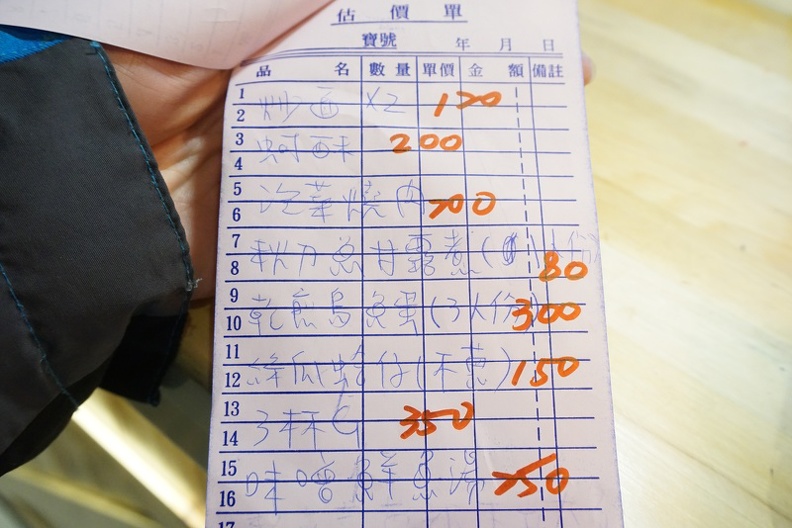 估價單
寶號 年 月 日
品名 數量 單價 金額 備註
1
2 炒面 X2 120
3 蚵酥 200
4
5
6 泡菜燒肉 200
7
8 秋刀魚甘露煮(1人份) 80
9
10 乾煎烏魚蛋(3人份) 300
11
12 絲瓜蛤仔(不蔥) 150
13
14 3杯G 350
15
16 味噌鮮魚湯 250
17